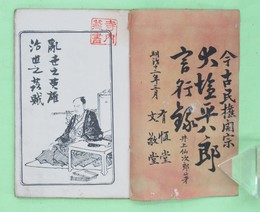 今古民権開宗
大塩平八郎
言行録
井上仙次郎著
有恒堂
文敬堂
明治十二年三月
乱世之英雄
治世之姦賊